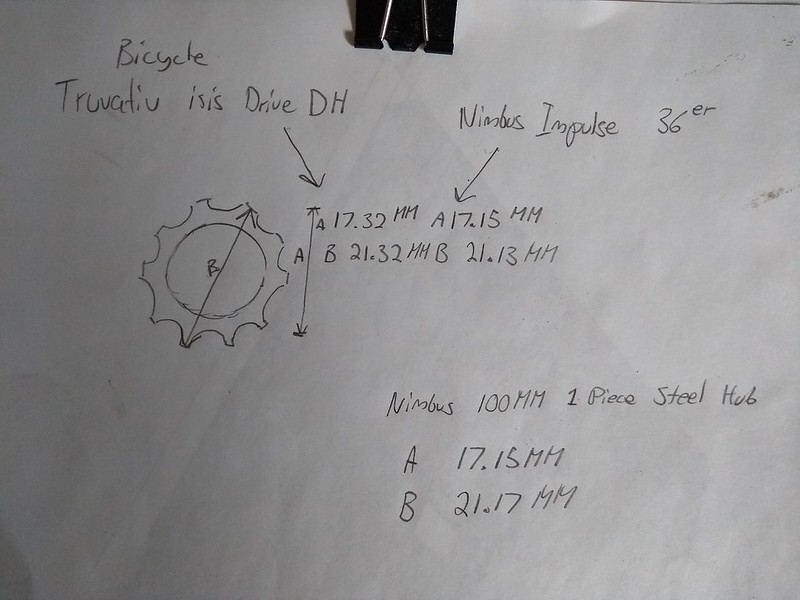 Bicycle
Truvativ isis Drive DH
Nimbus Impulse 36er
A 17.32 MM A 17.15 MM
B 21.32 MM B 21.13 MM
A
B
Nimbus 100MM 1 Piece Steel Hub
A 17.15MM
B 21.17 MM